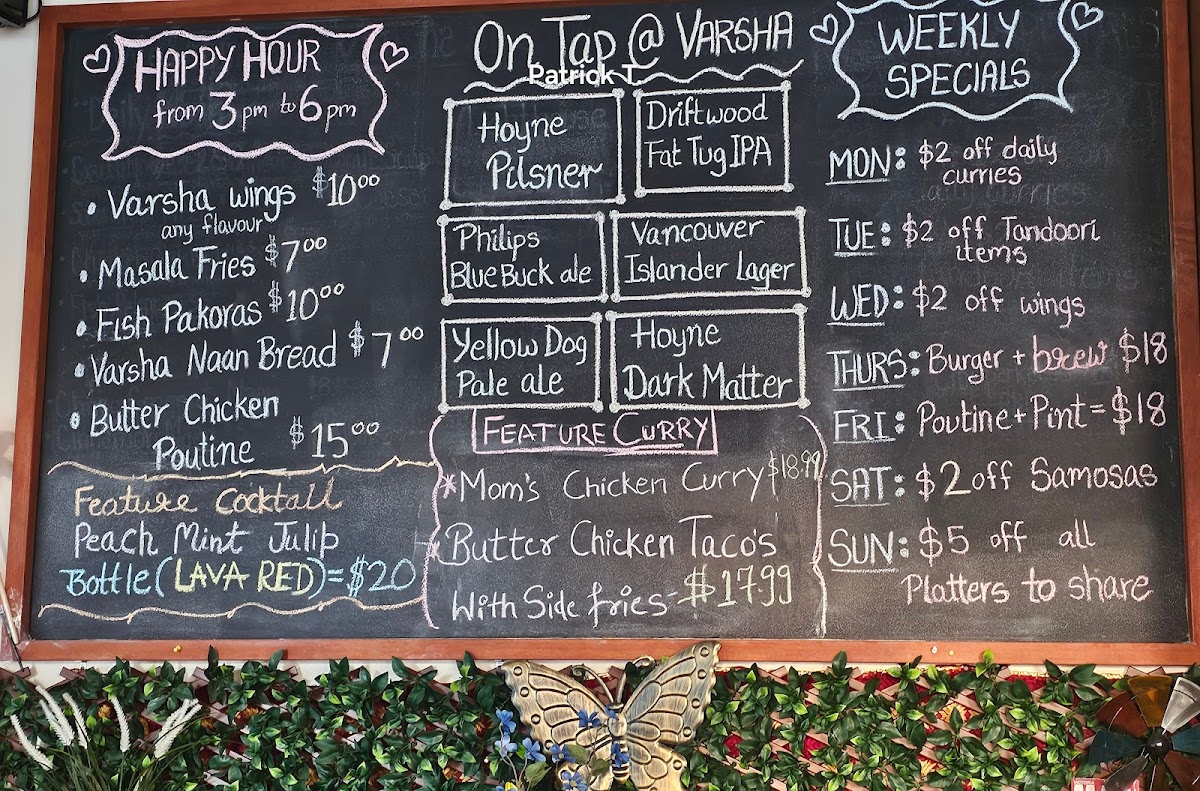 HAPPY HOUR
from 3pm to 6pm
• Varsha wings $10.00
any flavour
• Masala Fries $7.00
• Fish Pakoras $10.00
• Varsha Naan Bread $7.00
• Butter Chicken
Poutine $15.00
Feature Cocktail
Peach Mint Julip
Bottle (LAVA RED) = $20
On Tap @ VARSHA
Patrick T
Hoyne
Pilsner
Driftwood
Fat Tug IPA
Philips
Blue Buck ale
Vancouver
Islander Lager
Yellow Dog
Pale ale
Hoyne
Dark Matter
FEATURE CURRY
*Mom's Chicken Curry $18.99
*Butter Chicken Taco's
With Side fries - $17.99
WEEKLY
SPECIALS
MON: $2 off daily
curries
TUE: $2 off Tandoori
items
WED: $2 off wings
THURS: Burger + brew $18
FRI: Poutine + Pint = $18
SAT: $2 off Samosas
SUN: $5 off all
Platters to share